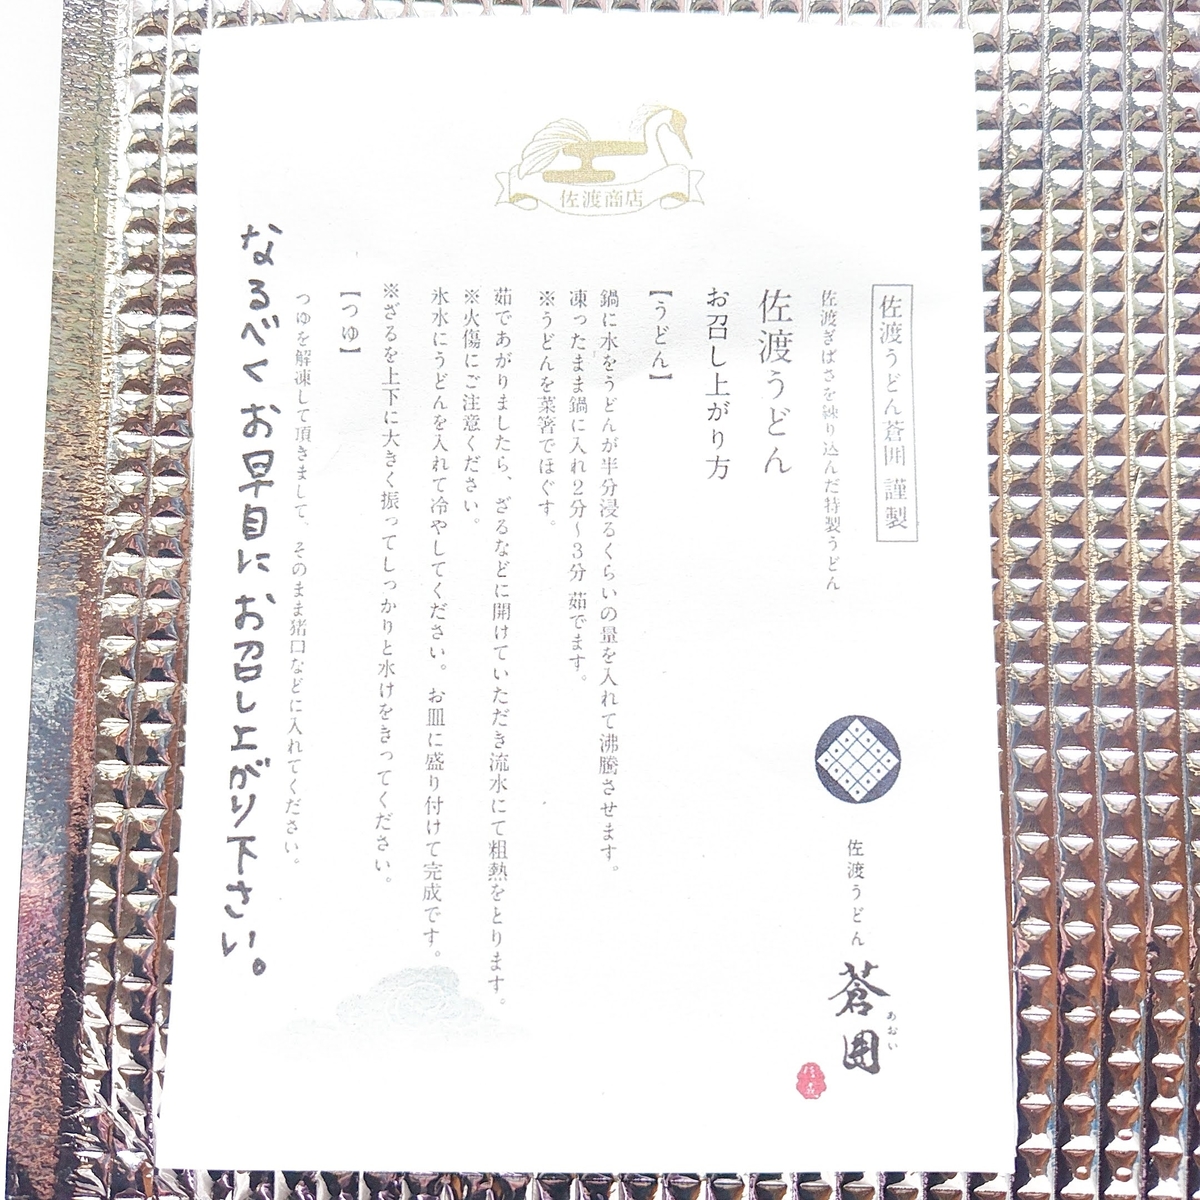 佐渡商店
佐渡うどん蒼囲 謹製
佐渡ぎばさを練り込んだ特製うどん
佐渡うどん
お召し上がり方
【うどん】
鍋に水をうどんが半分浸るくらいの量を入れて沸騰させます。
凍ったまま鍋に入れ2分～3分 茹でます。
※うどんを菜箸でほぐす。
茹であがりましたら、ざるなどに開けていただき流水にて粗熱をとります。
※火傷にご注意ください。
氷水にうどんを入れて冷やしてください。お皿に盛り付けて完成です。
※ざるを上下に大きく振ってしっかりと水けをきってください。
【つゆ】
つゆを解凍して頂きまして、そのまま猪口などに入れてください。
なるべくお早目にお召し上がり下さい。
佐渡うどん
蒼囲
あおい